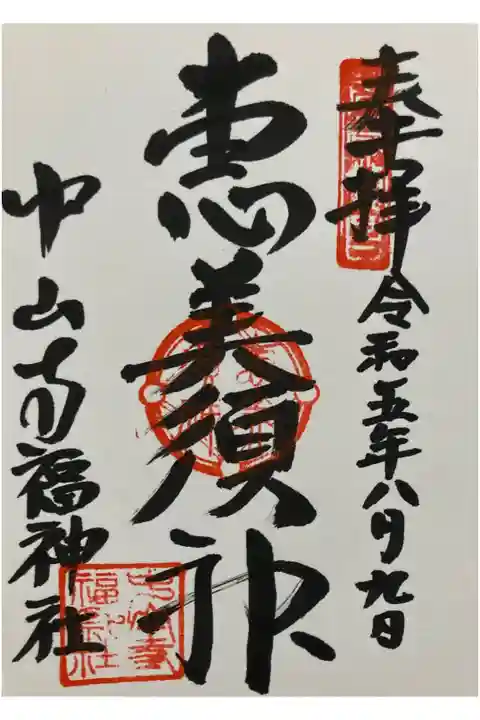 奉拝 令和五年八月九日
恵美須神
中山寺福神社
中山寺福神社